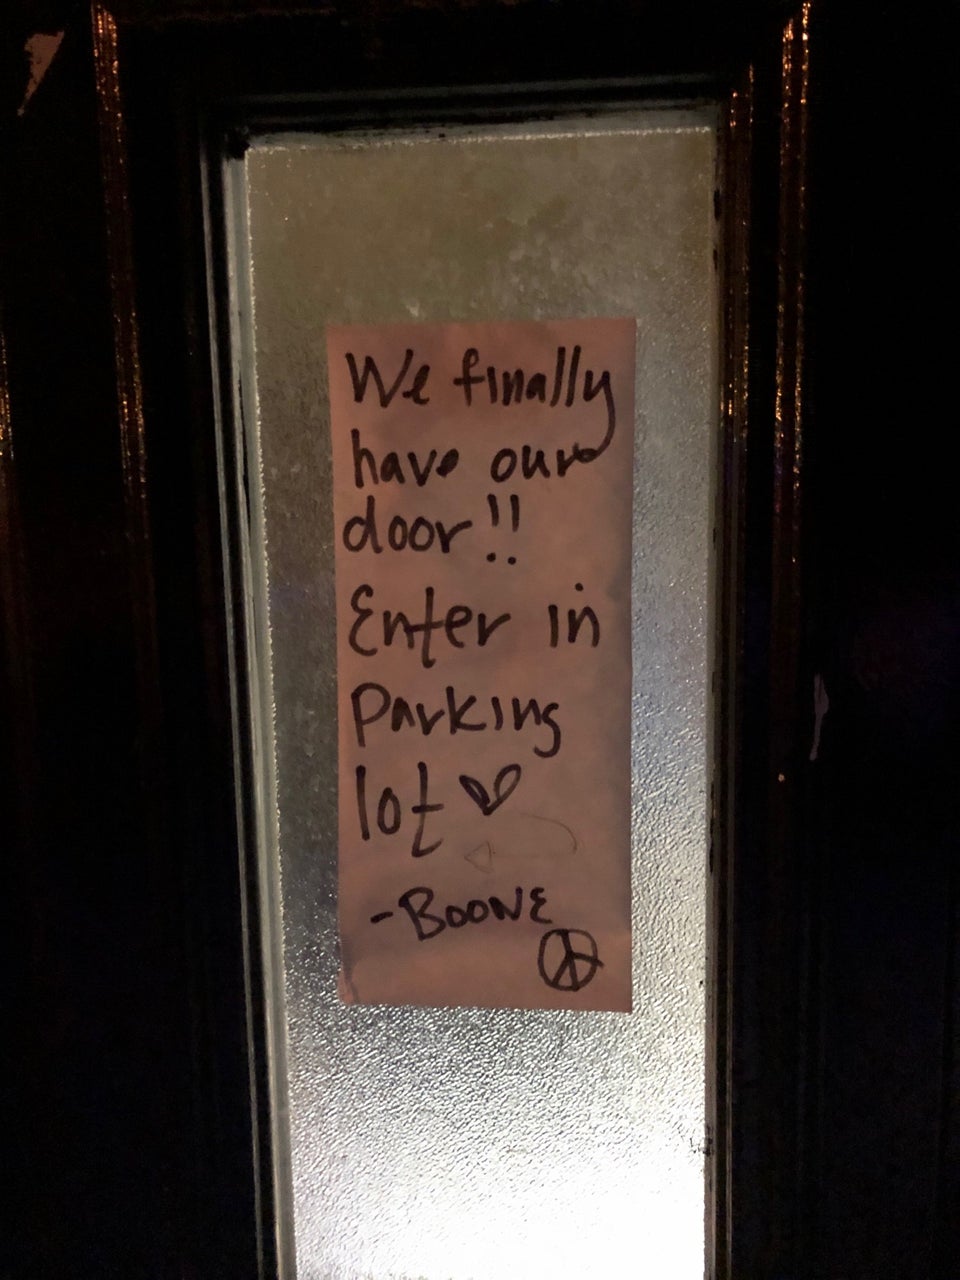 We finally
have our
door!!
Enter in
Parking
lot ♡
-BOONE
☮